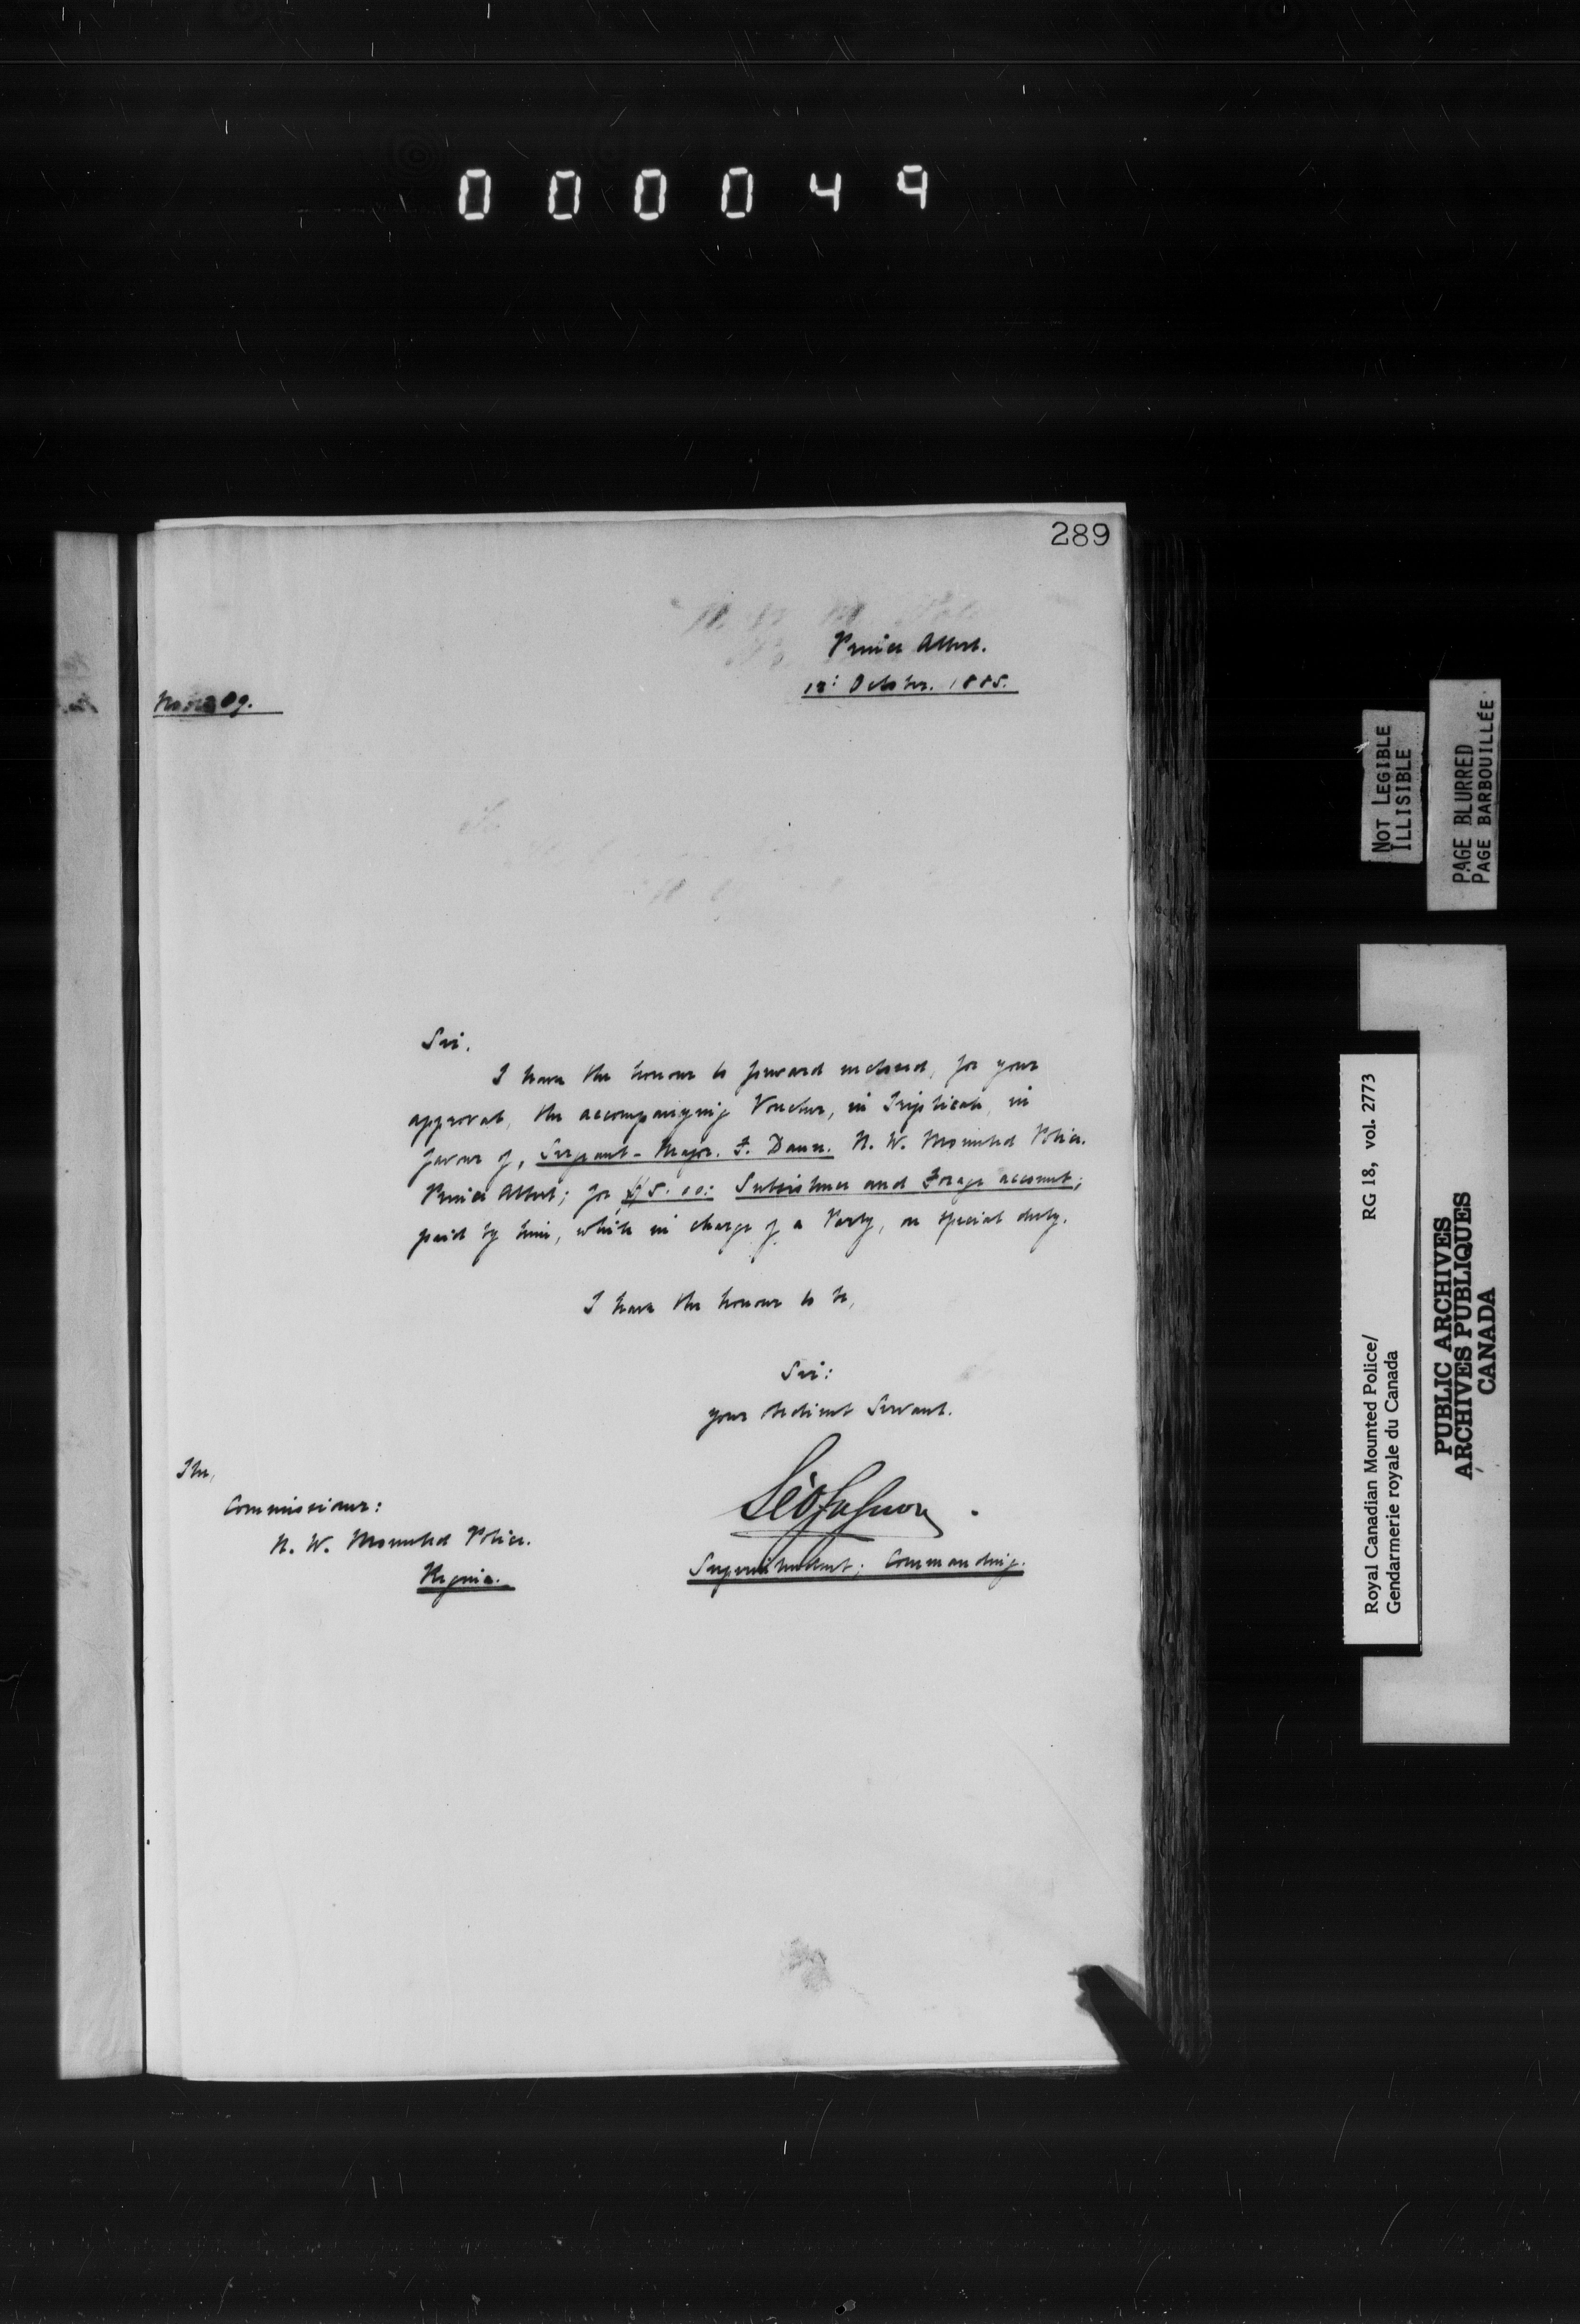 000049
289
Prince Albert.
12: October. 1885.
Sir.
I have the honour to forward inclosed, for your
approval, the accompanying Voucher, in Triplicate, in
favour of, Sergeant-Major. F. Dann. N. W. Mounted Police.
Prince Albert; for $5.00: Subsistence and Forage account;
paid by him, while in charge of a Party, on special duty.
I have the honour to be,
Sir:
your obedient Servant.
The,
Commissioner:
N. W. Mounted Police.
Regina.
Superintendent; Commanding.
NOT LEGIBLE
ILLISIBLE
PAGE BLURRED
PAGE BARBOUILLÉE.
Royal Canadian Mounted Police/ RG 18, vol. 2773
Gendarmerie royale du Canada
PUBLIC ARCHIVES
ARCHIVES PUBLIQUES
CANADA